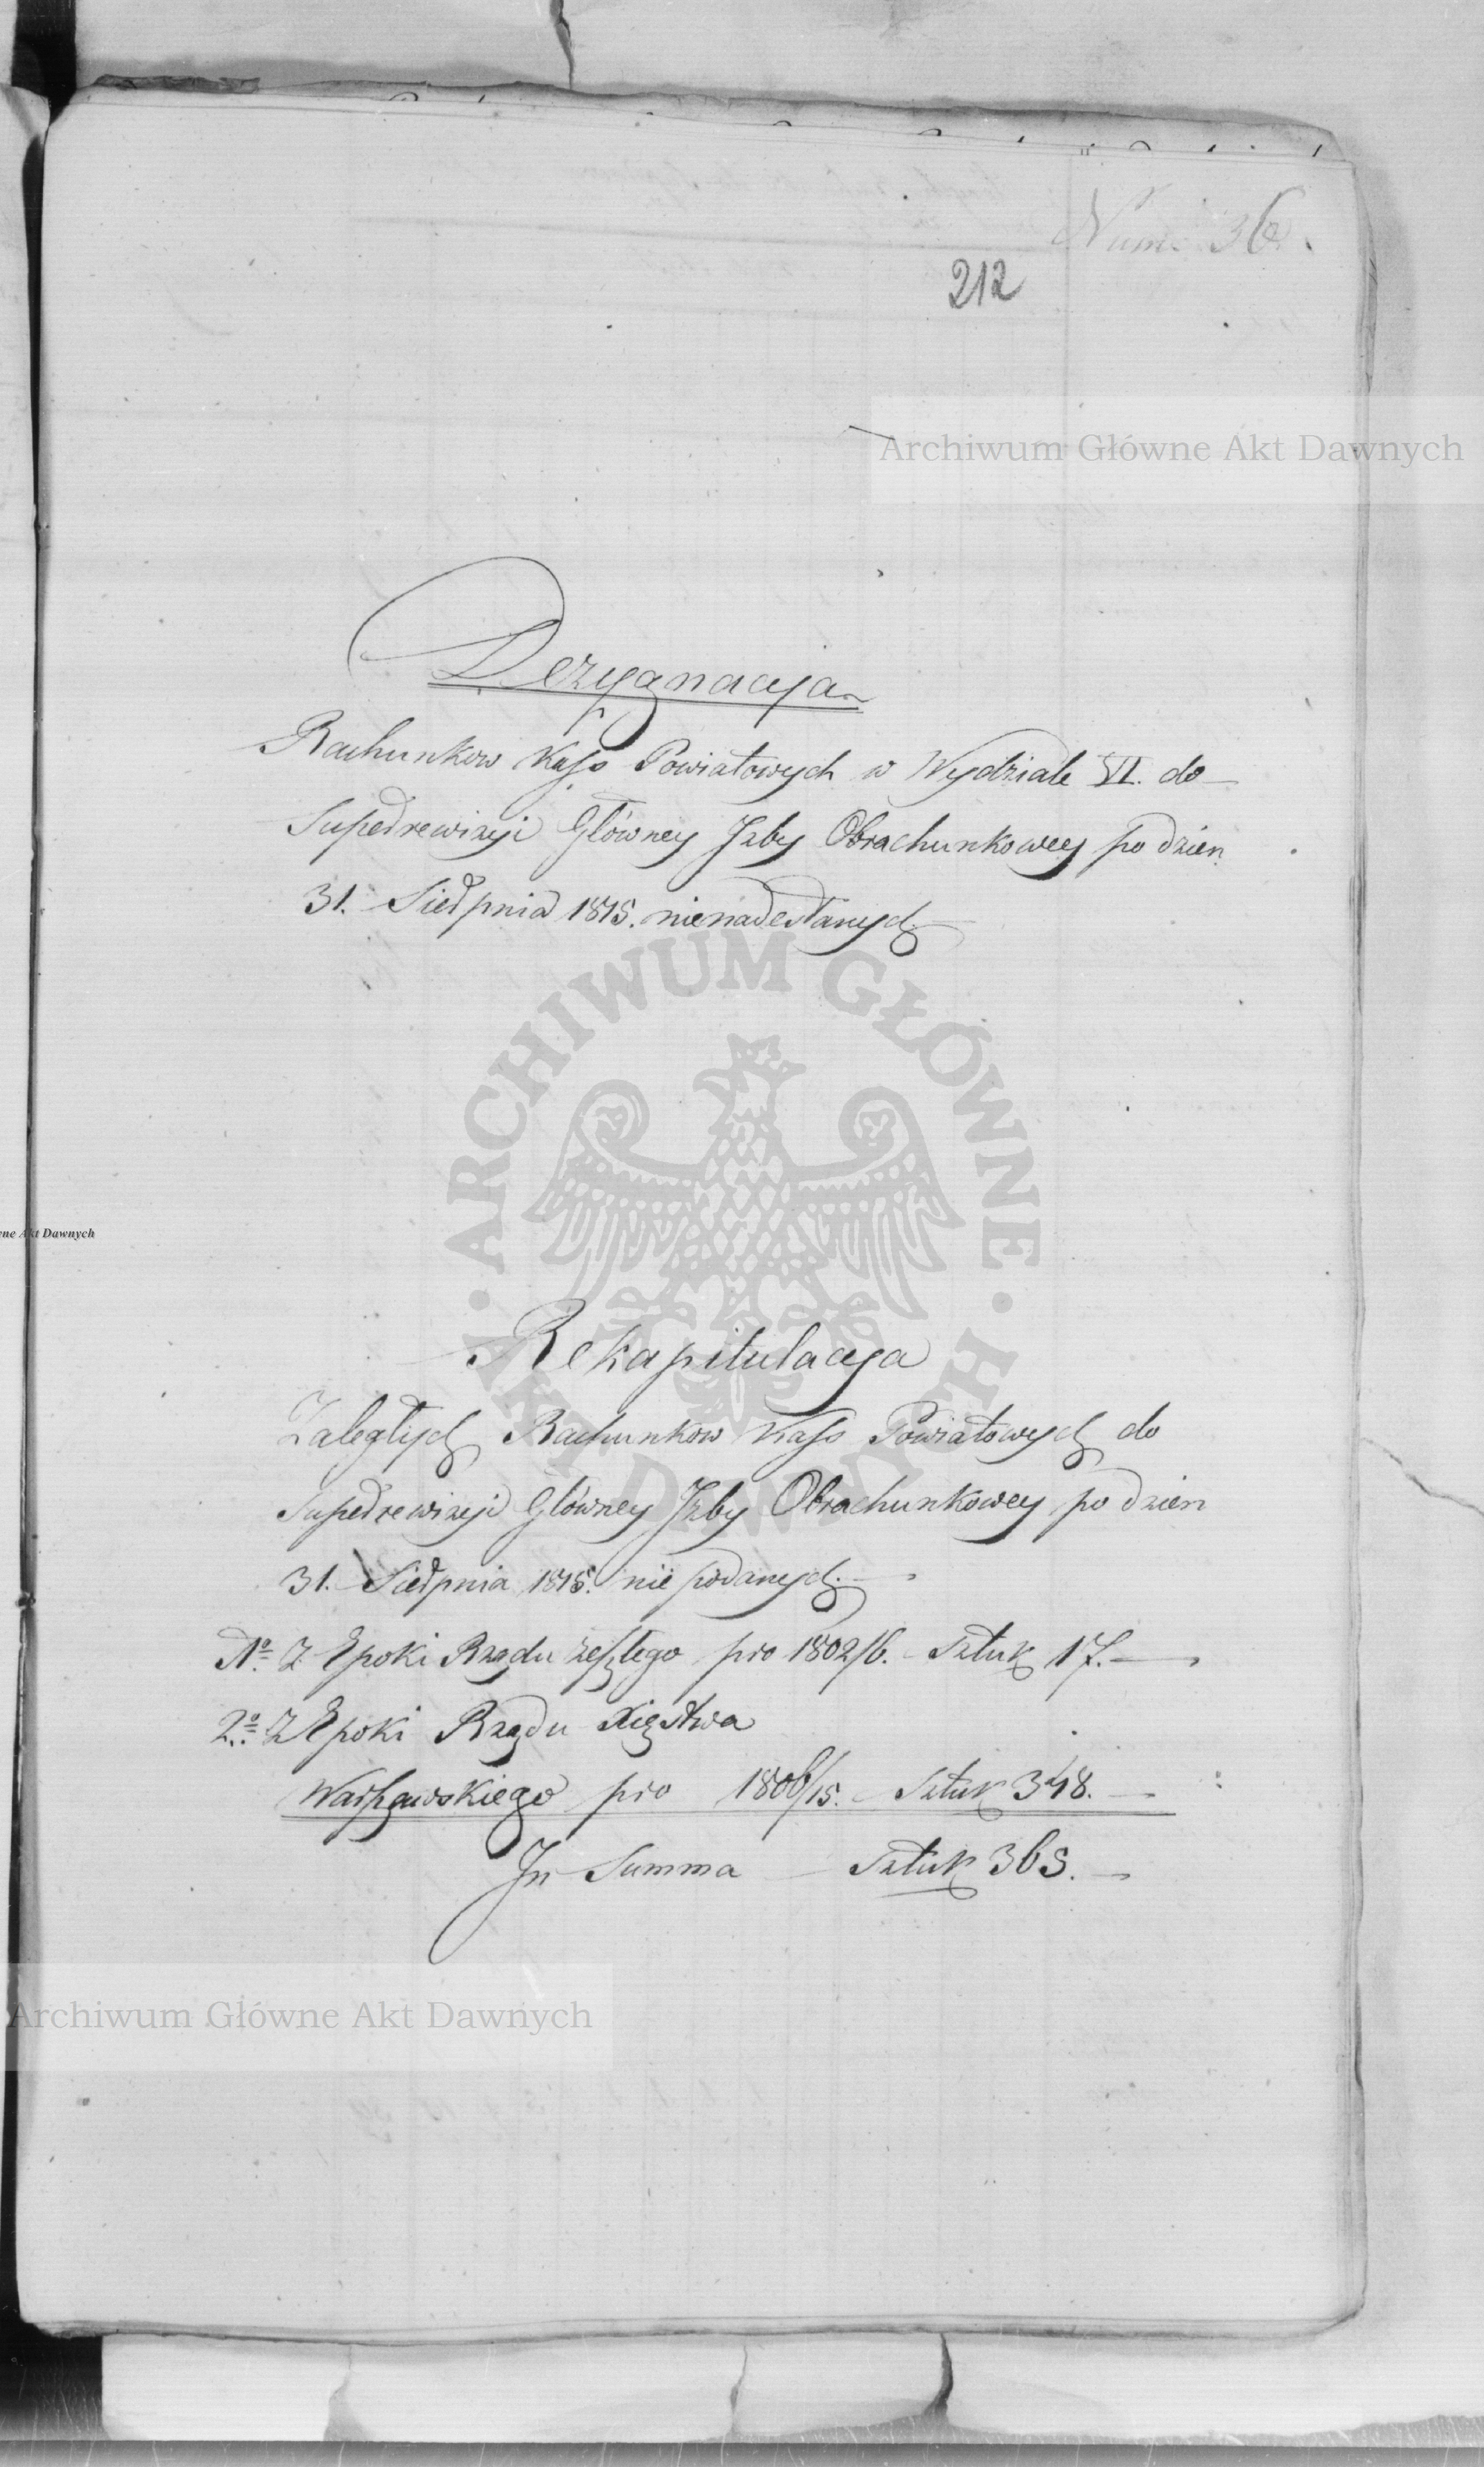 Num. 36.
212
Archiwum Główne Akt Dawnych
Dezygnacyja
Rachunkow Kass Powiatowych w Wydziale VI. do
Superrewizyi Główney Jzby Obrachunkowey po dzien
31. Sierpnia 1815. nienadesłanych
ARCHIWUM GŁÓWNE AKT DAWNYCH
wne Akt Dawnych
Rekapitulacya
Zaległych Rachunkow Kass Powiatowych do
Superrewizyi Główney Jzby Obrachunkowey po dzien
31. Sierpnia 1815. nie podanych.
1o. Z Epoki Rządu zeszłego pro 1802/6. Sztuk 17.
2o. Z Epoki Rządu Xięstwa
Warszawskiego pro 1806/15. Sztuk 348.
Jn Summa Sztuk 365.
Archiwum Główne Akt Dawnych